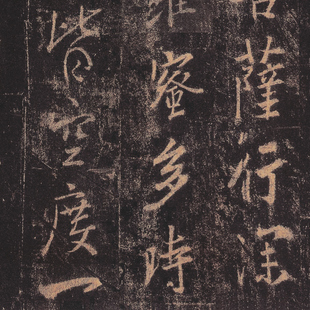 菩薩行深
羅蜜多時
皆空度一